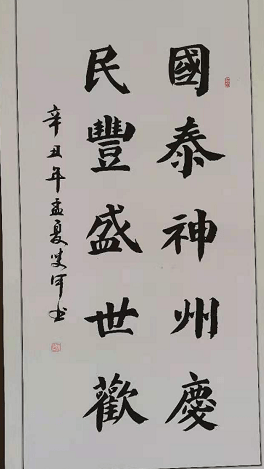 國泰神州慶
民豐盛世歡
辛丑年孟夏